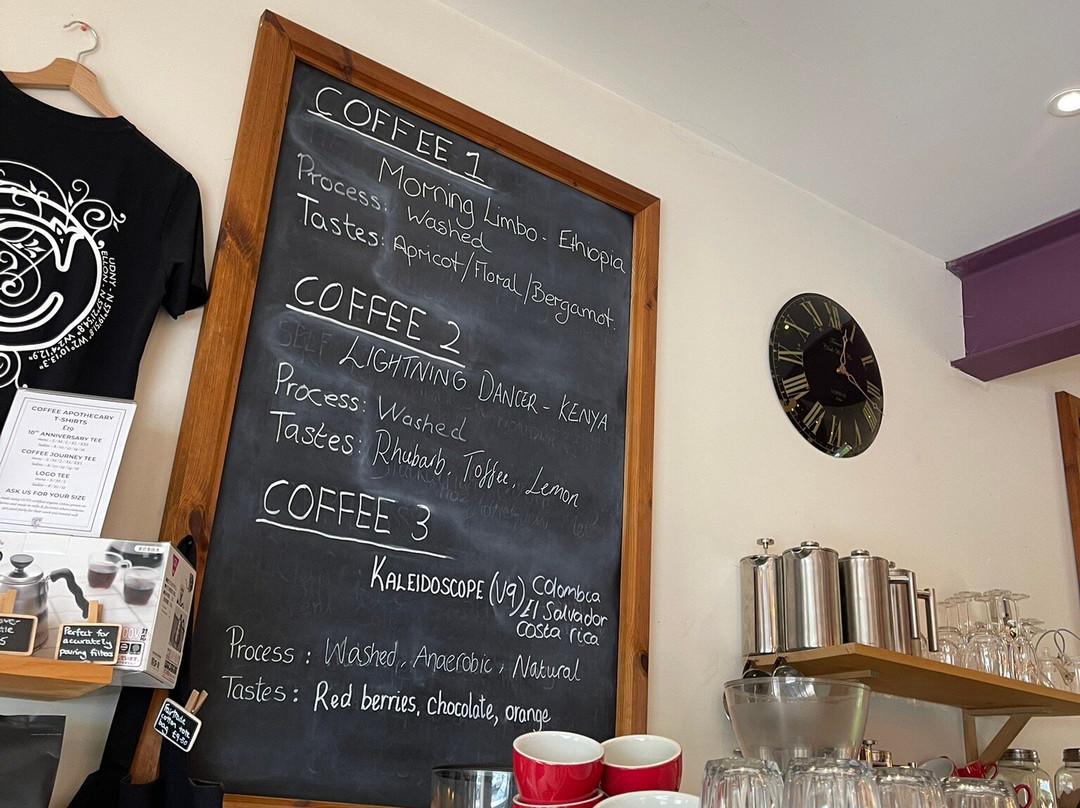 COFFEE 1
Morning Limbo - Ethiopia
Process: Washed
Tastes: Apricot/Floral/Bergamot.
COFFEE 2
SELF LIGHTNING DANCER - KENYA
Process: Washed
Tastes: Rhubarb, Toffee, Lemon
COFFEE 3
KALEIDOSCOPE (V9) Colombca
El Salvador
Costa rica
Process: Washed, Anaerobic, Natural
Tastes: Red berries, chocolate, orange
UDNY · N 57°19'51.8" W2°10'13.3"
ELLON · N 57°21'54.8" W2°4'12.9"
COFFEE APOTHECARY
T-SHIRTS
£19
10TH ANNIVERSARY TEE
COFFEE JOURNEY TEE
LOGO TEE
ASK US FOR YOUR SIZE
Perfect for
accurately
pouring filters
Fairtrade
cotton tote
bag £9.50